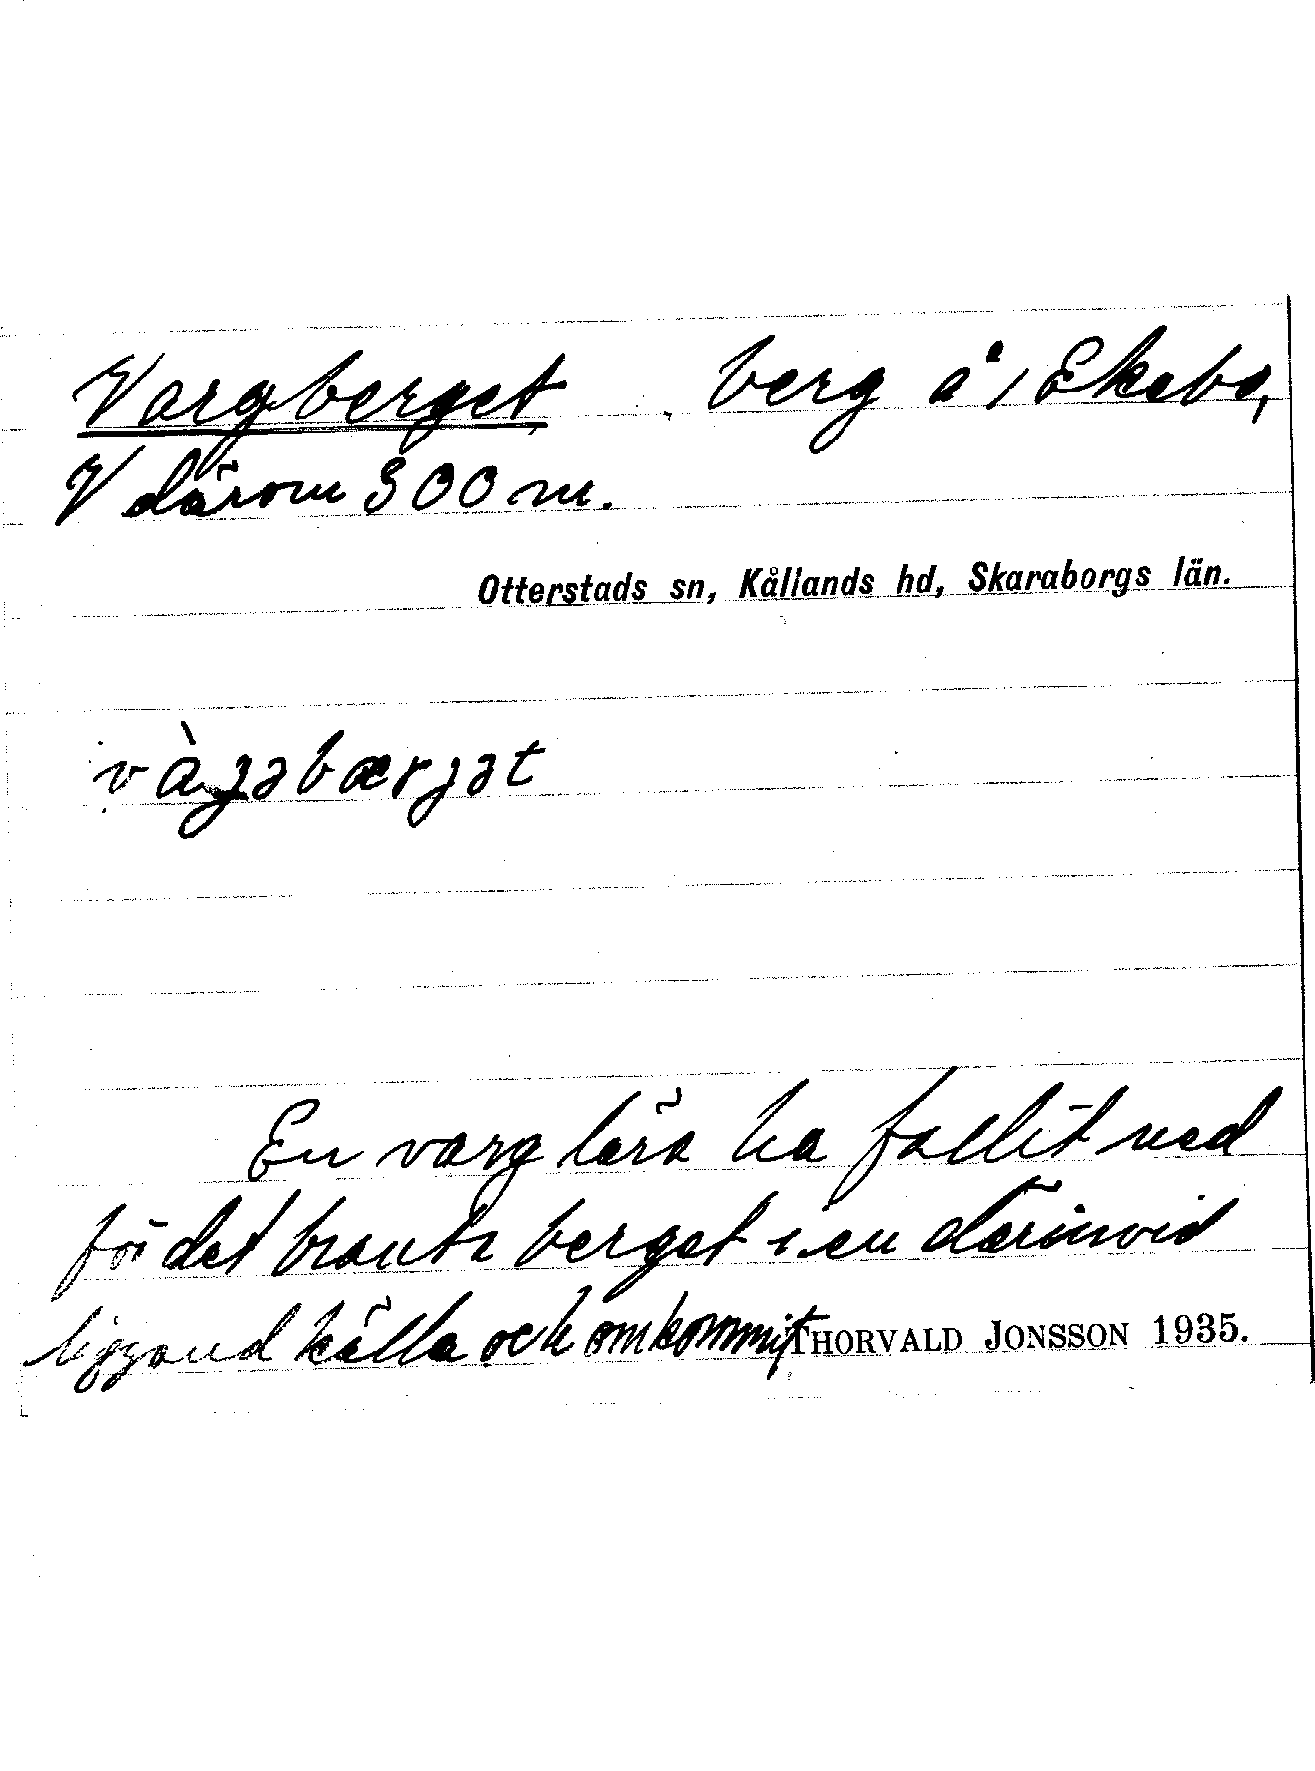 Vargberget berg å 1 Ekebo,
V därom 300 m.
Otterstads sn, Kållands hd, Skaraborgs län.
vàɡəbærjət
En varg lära ha fallit ned
för det branta berget i en därinvid
liggand källa och omkommit
THORVALD JONSSON 1935.